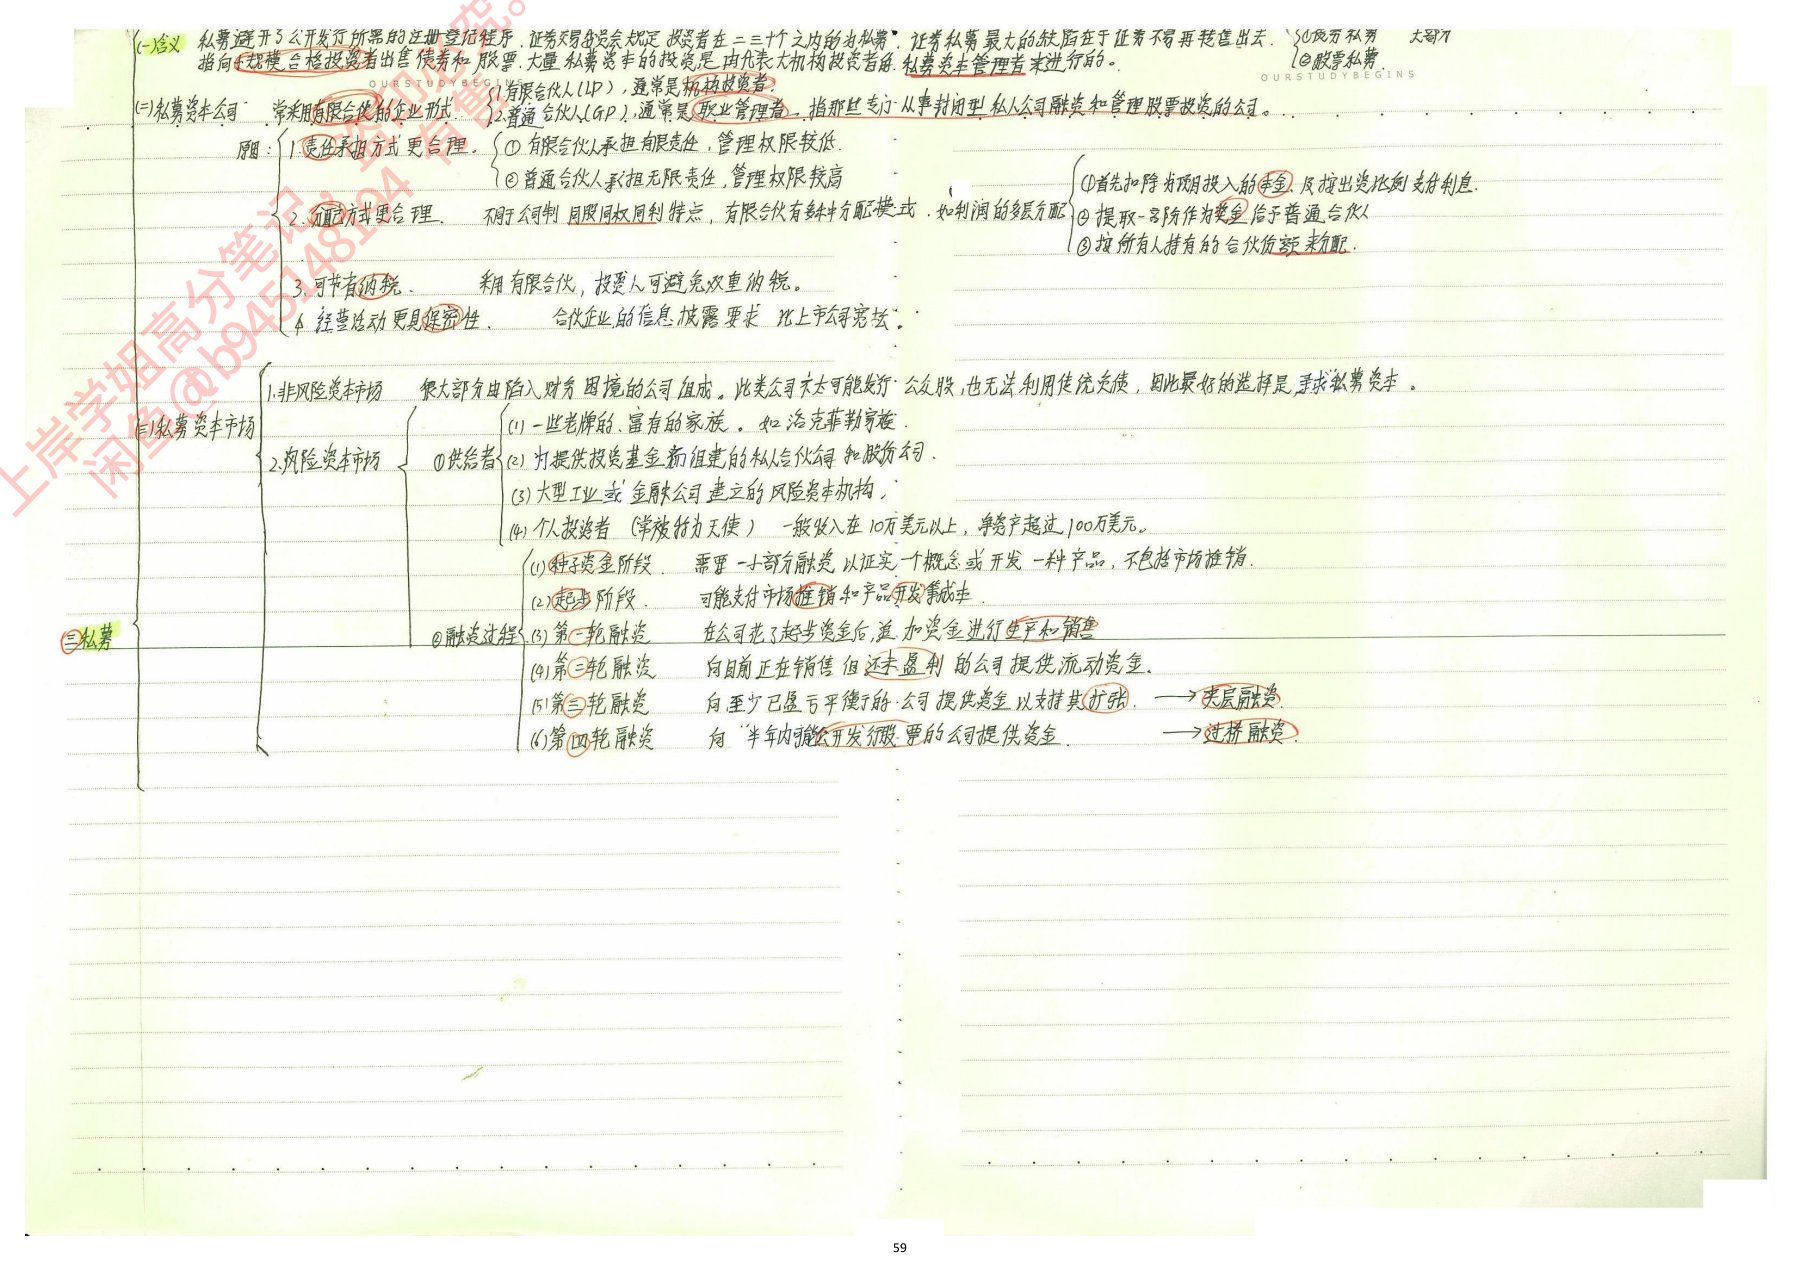 (一)含义 私募避开了公开发行所需的注册登记程序.证券交易委员会规定投资者在二三十个之内的为私募.证券私募最大的缺陷在于证券不易再转售出去. ①债券私募 大部分
指向小规模合格投资者出售债券和股票.大量私募资本的投资是由代表大机构投资者的私募资本管理者来进行的。 ②股票私募.
OURSTUDYBEGINS OURSTUDYBEGINS
1.有限合伙人(LP),通常是机构投资者.
(二)私募资本公司 常采用有限合伙的企业形式. 2.普通合伙人(GP),通常是职业管理者.指那些专门从事封闭型私人公司融资和管理股票投资的公司。
原因: 1.责任承担方式更合理。 ①有限合伙人承担有限责任,管理权限较低.
②普通合伙人承担无限责任,管理权限较高
2.分配方式更合理. 不同于公司制同股同权同利特点,有限合伙有多种分配模式.如利润的多层分配
①首先扣除为项目投入的本金.及按出资比例支付利息.
②提取一部分作为奖金给予普通合伙人
③按所有人持有的合伙份额来分配.
3.可节省纳税. 采用有限合伙,投资人可避免双重纳税。
4.经营活动更具保密性. 合伙企业的信息披露要求比上市公司宽松。
(三)私募资本市场
1.非风险资本市场 很大部分由陷入财务困境的公司组成。此类公司不太可能发行公众股,也无法利用传统负债,因此最好的选择是寻求私募资本。
2.风险资本市场
①供给者
(1)一些老牌的、富有的家族。如洛克菲勒家族.
(2)为提供投资基金而组建的私人合伙公司和股份公司.
(3)大型工业或金融公司建立的风险资本机构,
(4)个人投资者(常被称为天使) 一般收入在10万美元以上,净资产超过100万美元。
②融资过程
(1)种子资金阶段. 需要一小部分融资以证实一个概念或开发一种产品,不包括市场推销.
(2)起步阶段. 可能支付市场推销和产品开发等成本.
三私募
(3)第一轮融资 在公司花了起步资金后,追加资金进行生产和销售
(4)第二轮融资 向目前正在销售但还未盈利的公司提供流动资金.
(5)第三轮融资 向至少已盈亏平衡的公司提供资金以支持其扩张. →夹层融资.
(6)第四轮融资 向半年内可能公开发行股票的公司提供资金. →过桥融资.
上岸学姐高分笔记,
闲鱼@b94514819
59